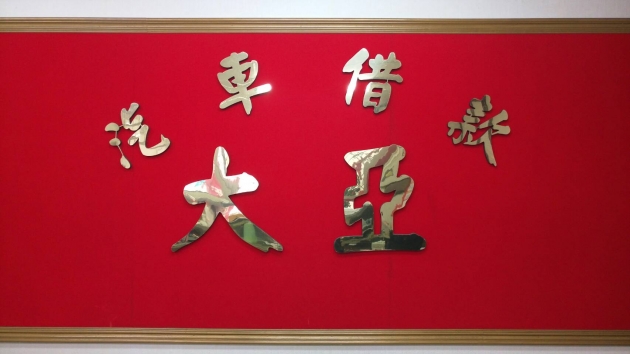 汽車借款
大亞